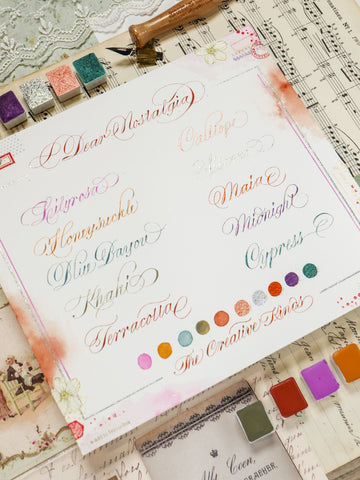 A Dear Nostalgia
Kilyrosa
Honeysuckle
Blin Bayou
Khaki
Terracotta
Calliope
Maia
Midnight
Cypress
The Creative Kinds